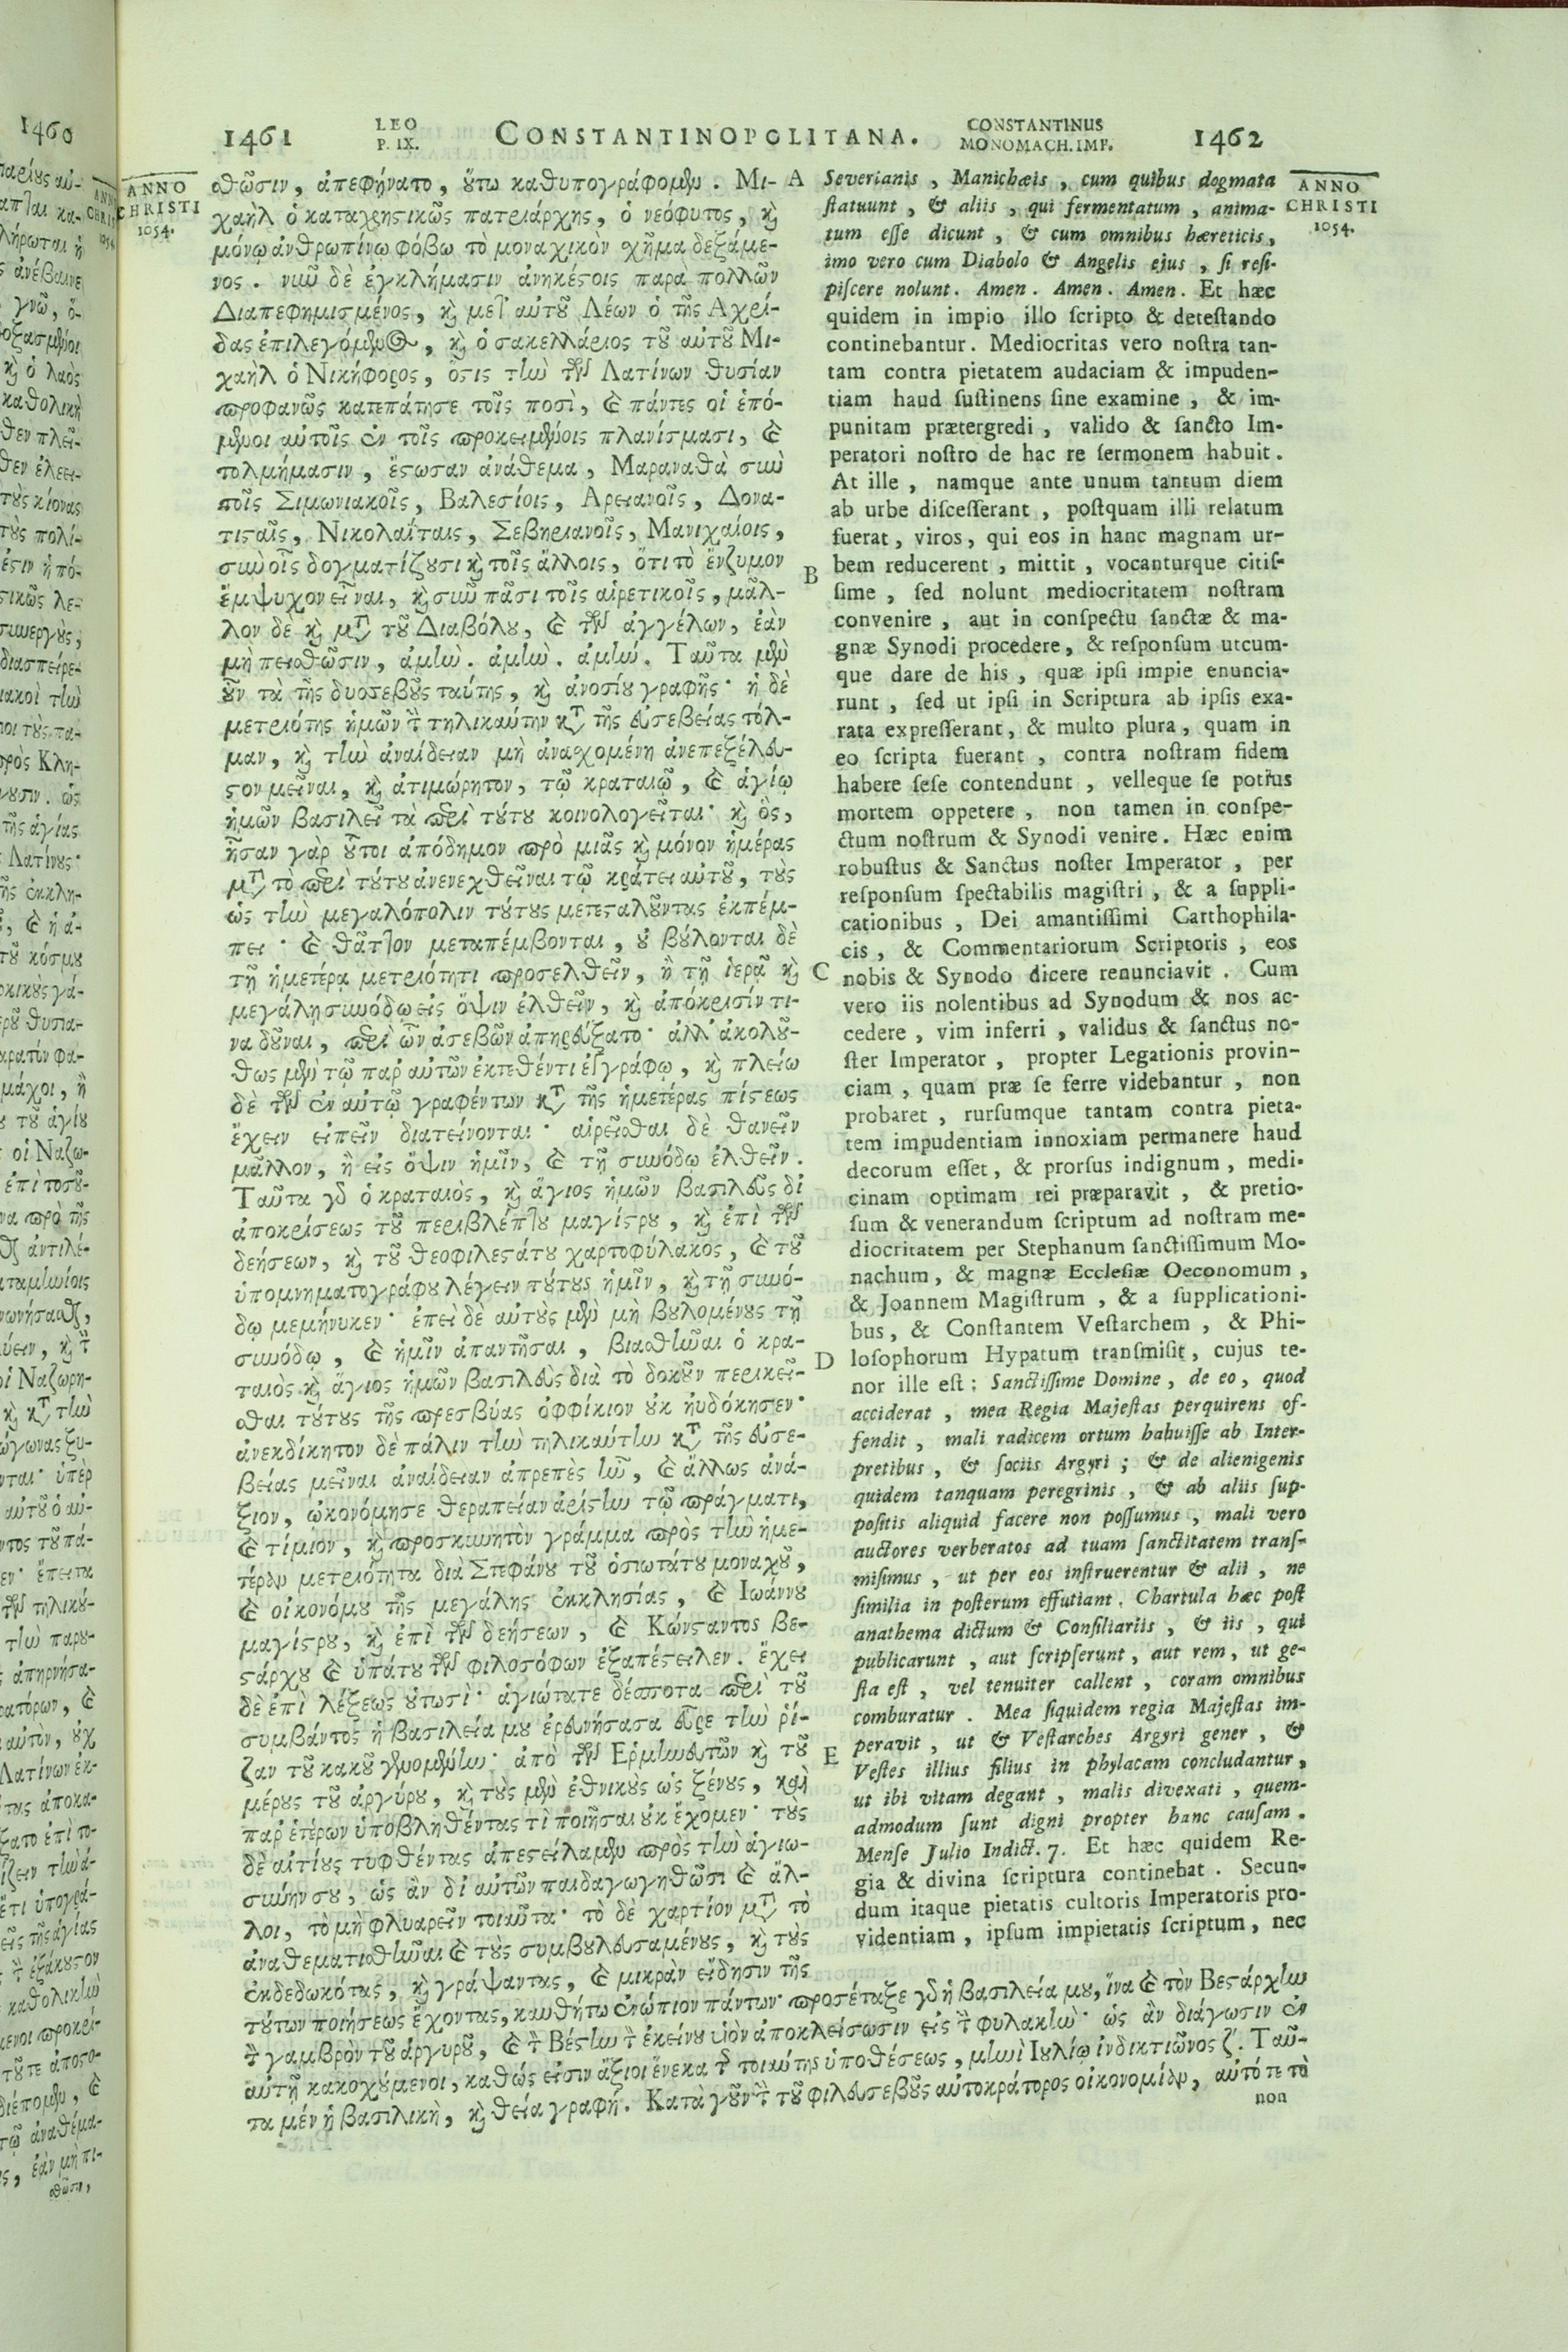 1461
LEO
P. IX.
CONSTANTINOPOLITANA.
CONSTANTINUS
MONOMACH. IMP.
1462
ANNO
CHRISTI
1054.
σθῶσιν, ἀπεφήνατο, ὕτω καθυπογράφομῳ. Μι-
χαὴλ ὁ καταχρηστικῶς πατριάρχης, ὁ νεόφυτος, καὶ
μόνῳ ἀνθρωπίνῳ φόβῳ τὸ μοναχικὸν σχῆμα δεξάμε-
νος. νιῦ δὲ ἐγκλήμασιν ἀνηκέστοις παρὰ πολλῶν
Διαπεφημισμένος, καὶ μετ' αὐτοῦ Λέων ὁ τῆς Αχρί-
δας ἐπιλεγόμενος, καὶ ὁ σακελλάριος τοῦ αὐτοῦ Μι-
χαὴλ ὁ Νικήφορος, ὅστις τὴν τῶν Λατίνων θυσίαν
προφανῶς κατεπάτησε τοῖς ποσὶ, καὶ πάντες οἱ ἑπό-
μενοι αὐτοῖς ἐν τοῖς προκειμένοις πλανίσμασι, καὶ
τολμήμασιν, ἔστωσαν ἀνάθεμα, Μαραναθὰ σὺν
τοῖς Σιμωνιακοῖς, Βαλεσίοις, Αρειανοῖς, Δονα-
τισταῖς, Νικολαΐταις, Σεβηριανοῖς, Μανιχαίοις,
σὺν οἷς δογματίζουσι καὶ τοῖς ἄλλοις, ὅτι τὸ ἔνζυμον
ἔμψυχον εἶναι, καὶ σὺν πᾶσι τοῖς αἱρετικοῖς, μᾶλ-
λον δὲ καὶ μετὰ τοῦ Διαβόλου, καὶ τῶν ἀγγέλων, ἐὰν
μὴ πεισθῶσιν, ἀμὴν. ἀμὴν. ἀμήν. Ταῦτα μὲν
οὖν τὰ τῆς δυσσεβοῦς ταύτης, καὶ ἀνοσίου γραφῆς· ἡ δὲ
μετριότης ἡμῶν τὴν τηλικαύτην κατὰ τῆς εὐσεβείας τόλ-
μαν, καὶ τὴν ἀναίδειαν μὴ ἀνασχομένη ἀνεπεξέλευ-
στον μεῖναι, καὶ ἀτιμώρητον, τῷ κραταιῷ, καὶ ἁγίῳ
ἡμῶν βασιλεῖ τὰ περὶ τούτου κοινολογεῖται· καὶ ὃς,
ἦσαν γὰρ οὗτοι ἀπόδημον πρὸ μιᾶς καὶ μόνον ἡμέρας
μετὰ τὸ περὶ τούτου ἀνενεχθεῖναι τῷ κράτει αὐτοῦ, τοὺς
ὡς τὴν μεγαλόπολιν τούτους μετεσταλοῦντας ἐκπέμ-
πει· καὶ θᾶττον μεταπέμβονται, οὐ βούλονται δὲ
τῇ ἡμετέρᾳ μετριότητι προσελθεῖν, ἢ τῇ ἱερᾷ καὶ
μεγάλῃ συνόδῳ εἰς ὄψιν ἐλθεῖν, καὶ ἀπόκρισίν τι-
να δοῦναι, περὶ ὧν ἀσεβῶν ἀπηρεύξατο· ἀλλ' ἀκολού-
θως μὲν τῷ παρ' αὐτῶν ἐκτεθέντι ἐγγράφῳ, καὶ πλείω
δὲ τῶν ἐν αὐτῷ γραφέντων κατὰ τῆς ἡμετέρας πίστεως
ἔχειν εἰπεῖν διατείνονται· αἱρεῖσθαι δὲ θανεῖν
μᾶλλον, ἢ εἰς ὄψιν ἡμῖν, καὶ τῇ συνόδῳ ἐλθεῖν.
Ταῦτα γὰρ ὁ κραταιὸς, καὶ ἅγιος ἡμῶν βασιλεὺς δι'
ἀποκρίσεως τοῦ περιβλέπτου μαγίστρου, καὶ ἐπὶ τῶν
δεήσεων, καὶ τοῦ θεοφιλεστάτου χαρτοφύλακος, καὶ τοῦ
ὑπομνηματογράφου λέγειν τούτους ἡμῖν, καὶ τῇ συνό-
δῳ μεμήνυκεν· ἐπεὶ δὲ αὐτοὺς μὲν μὴ βουλομένους τῇ
συνόδῳ, καὶ ἡμῖν ἀπαντῆσαι, βιασθῆναι ὁ κρα-
ταιὸς καὶ ἅγιος ἡμῶν βασιλεὺς διὰ τὸ δοκοῦν περικεῖ-
σθαι τούτους τῆς πρεσβύας ὀφφίκιον οὐκ ηὐδόκησεν·
ἀνεκδίκητον δὲ πάλιν τὴν τηλικαύτην κατὰ τῆς εὐσε-
βείας μεῖναι ἀναίδειαν ἀπρεπὲς ἦν, καὶ ἄλλως ἀνά-
ξιον, ᾠκονόμησε θεραπείαν ἀρίστην τῷ πράγματι,
καὶ τίμιον, καὶ προσκυνητὸν γράμμα πρὸς τὴν ἡμε-
τέραν μετριότητα διὰ Στεφάνου τοῦ ὁσιωτάτου μοναχοῦ,
καὶ οἰκονόμου τῆς μεγάλης ἐκκλησίας, καὶ Ιωάννου
μαγίστρου, καὶ ἐπὶ τῶν δεήσεων, καὶ Κώνσταντος βε-
στάρχου καὶ ὑπάτου τῶν φιλοσόφων ἐξαπέστειλεν. ἔχει
δὲ ἐπὶ λέξεως οὑτωσὶ· ἁγιώτατε δέσποτα περὶ τοῦ
συμβάντος ἡ βασιλεία μου ἐρευνήσασα εὗρε τὴν ῥί-
ζαν τοῦ κακοῦ γενομένην· ἀπὸ τῶν Ερμηνευτῶν καὶ τοῦ
μέρους τοῦ ἀργύρου, καὶ τοὺς μὲν ἐθνικοὺς ὡς ξένους, καὶ
παρ' ἑτέρων ὑποβληθέντας τὶ ποιῆσαι οὐκ ἔχομεν· τοὺς
δὲ αἰτίους τυφθέντας ἀπεστείλαμεν πρὸς τὴν ἁγιω-
σύνην σου, ὡς ἂν δι' αὐτῶν παιδαγωγηθῶσι καὶ ἄλ-
λοι, τὸ μὴ φλυαρεῖν τοιαῦτα· τὸ δὲ χαρτίον μετὰ τὸ
ἀναθεματισθῆναι καὶ τοὺς συμβουλευσαμένους, καὶ τοὺς
ἐκδεδωκότας, καὶ γράψαντας, καὶ μικρὰν εἴδησιν τῆς
τούτων ποιήσεως ἔχοντας, καυθήτω ἐνώπιον πάντων· προσέταξε γὰρ ἡ βασιλεία μου, ἵνα καὶ τὸν Βεστάρχην
τὸν γαμβρὸν τοῦ ἀργυροῦ, καὶ τὸν Βέστην τὸν ἐκείνου υἱὸν ἀποκλείσωσιν εἰς τὴν φυλακὴν· ὡς ἂν διάγωσιν ἐν
αὐτῇ κακοχύμενοι, καθώς εἰσιν ἄξιοι ἕνεκα τῆς τοιαύτης ὑποθέσεως, μηνὶ Ιουλίῳ ἰνδικτιῶνος ζ'. Ταῦ-
τα μέν ἡ βασιλικὴ, καὶ θεία γραφή. Κατὰ γοῦν τὴν τοῦ φιλευσεβοῦς αὐτοκράτορος οἰκονομίαν, αὐτό τε τὸ
A
B
C
D
E
Severianis, Manichæis, cum quibus dogmata
statuunt, & aliis, qui fermentatum, anima-
tum esse dicunt, & cum omnibus hæreticis,
imo vero cum Diabolo & Angelis ejus, si resi-
piscere nolunt. Amen. Amen. Amen. Et hæc
quidem in impio illo scripto & detestando
continebantur. Mediocritas vero nostra tan-
tam contra pietatem audaciam & impuden-
tiam haud sustinens sine examine, & im-
punitam prætergredi, valido & sancto Im-
peratori nostro de hac re sermonem habuit.
At ille, namque ante unum tantum diem
ab urbe discesserant, postquam illi relatum
fuerat, viros, qui eos in hanc magnam ur-
bem reducerent, mittit, vocanturque citis-
sime, sed nolunt mediocritatem nostram
convenire, aut in conspectu sanctæ & ma-
gnæ Synodi procedere, & responsum utcum-
que dare de his, quæ ipsi impie enuncia-
runt, sed ut ipsi in Scriptura ab ipsis exa-
rata expresserant, & multo plura, quam in
eo scripta fuerant, contra nostram fidem
habere sese contendunt, velleque se potius
mortem oppetere, non tamen in conspe-
ctum nostrum & Synodi venire. Hæc enim
robustus & Sanctus noster Imperator, per
responsum spectabilis magistri, & a suppli-
cationibus, Dei amantissimi Carthophila-
cis, & Commentariorum Scriptoris, eos
nobis & Synodo dicere renunciavit. Cum
vero iis nolentibus ad Synodum & nos ac-
cedere, vim inferri, validus & sanctus no-
ster Imperator, propter Legationis provin-
ciam, quam præ se ferre videbantur, non
probaret, rursumque tantam contra pieta-
tem impudentiam innoxiam permanere haud
decorum esset, & prorsus indignum, medi-
cinam optimam rei præparavit, & pretio-
sum & venerandum scriptum ad nostram me-
diocritatem per Stephanum sanctissimum Mo-
nachum, & magnæ Ecclesiæ Oeconomum,
& Joannem Magistrum, & a supplicationi-
bus, & Constantem Vestarchem, & Phi-
losophorum Hypatum transmisit, cujus te-
nor ille est: Sanctissime Domine, de eo, quod
acciderat, mea Regia Majestas perquirens of-
fendit, mali radicem ortum habuisse ab Inter-
pretibus, & sociis Argyri; & de alienigenis
quidem tanquam peregrinis, & ab aliis sup-
positis aliquid facere non possumus, mali vero
auctores verberatos ad tuam sanctitatem trans-
misimus, ut per eos instruerentur & alii, ne
similia in posterum effutiant. Chartula hæc post
anathema dictum & Consiliariis, & iis, qui
publicarunt, aut scripserunt, aut rem, ut ge-
sta est, vel tenuiter callent, coram omnibus
comburatur. Mea siquidem regia Majestas im-
peravit, ut & Vestarches Argyri gener, &
Vestes illius filius in phylacam concludantur,
ut ibi vitam degant, malis divexati, quem-
admodum sunt digni propter hanc causam.
Mense Julio Indict. 7. Et hæc quidem Re-
gia & divina scriptura continebat. Secun-
dum itaque pietatis cultoris Imperatoris pro-
videntiam, ipsum impietatis scriptum, nec
non
ANNO
CHRISTI
1054.
1460